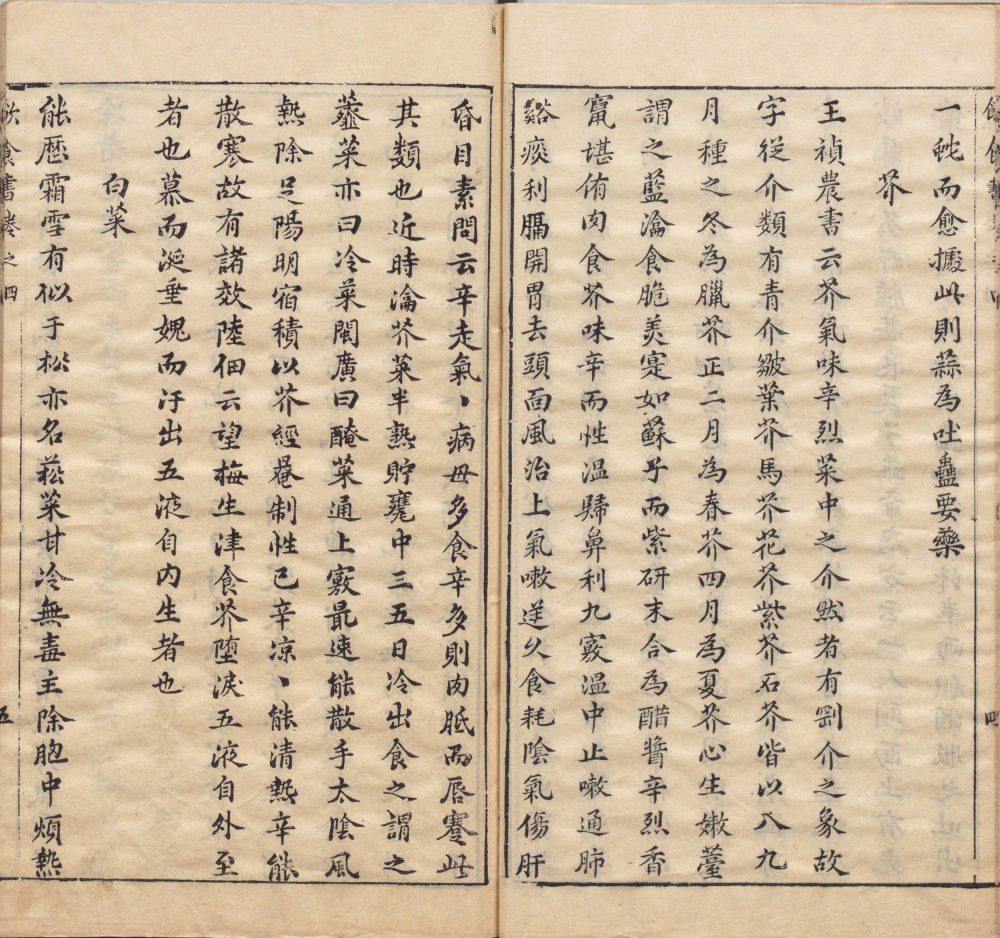 一蛇而愈據此則蒜為吐蠱要藥
芥
王禎農書云芥氣味辛烈菜中之介然者有剛介之象故
字從介類有青介皺葉芥馬芥花芥紫芥石芥皆以八九
月種之冬為臘芥正二月為春芥四月為夏芥心生嫩薹
謂之藍瀹食脆美寔如蘇子而紫研末合為醋醬辛烈香
甯堪侑肉食芥味辛而性温歸鼻利九竅温中止嗽通肺
豁痰利膈開胃去頭面風治上氣嗽逆久食耗陰氣傷肝
昏目素問云辛走氣丶病毋多食辛多則肉胝而唇蹇此
其類也近時瀹芥菜半熟貯甕中三五日冷出食之謂之
虀菜亦曰冷菜閩廣曰醃菜通上竅最速能散手太陰風
熱除足陽明宿積以芥經罨制性已辛凉丶能清熱辛能
散寒故有諸效陸佃云望梅生津食芥墮淚五液自外至
者也慕而涎垂媿而汗出五液自内生者也
白菜
能歷霜雪有似于松亦名菘菜甘冷無毒主除胞中煩熱
飲食書卷之四
五